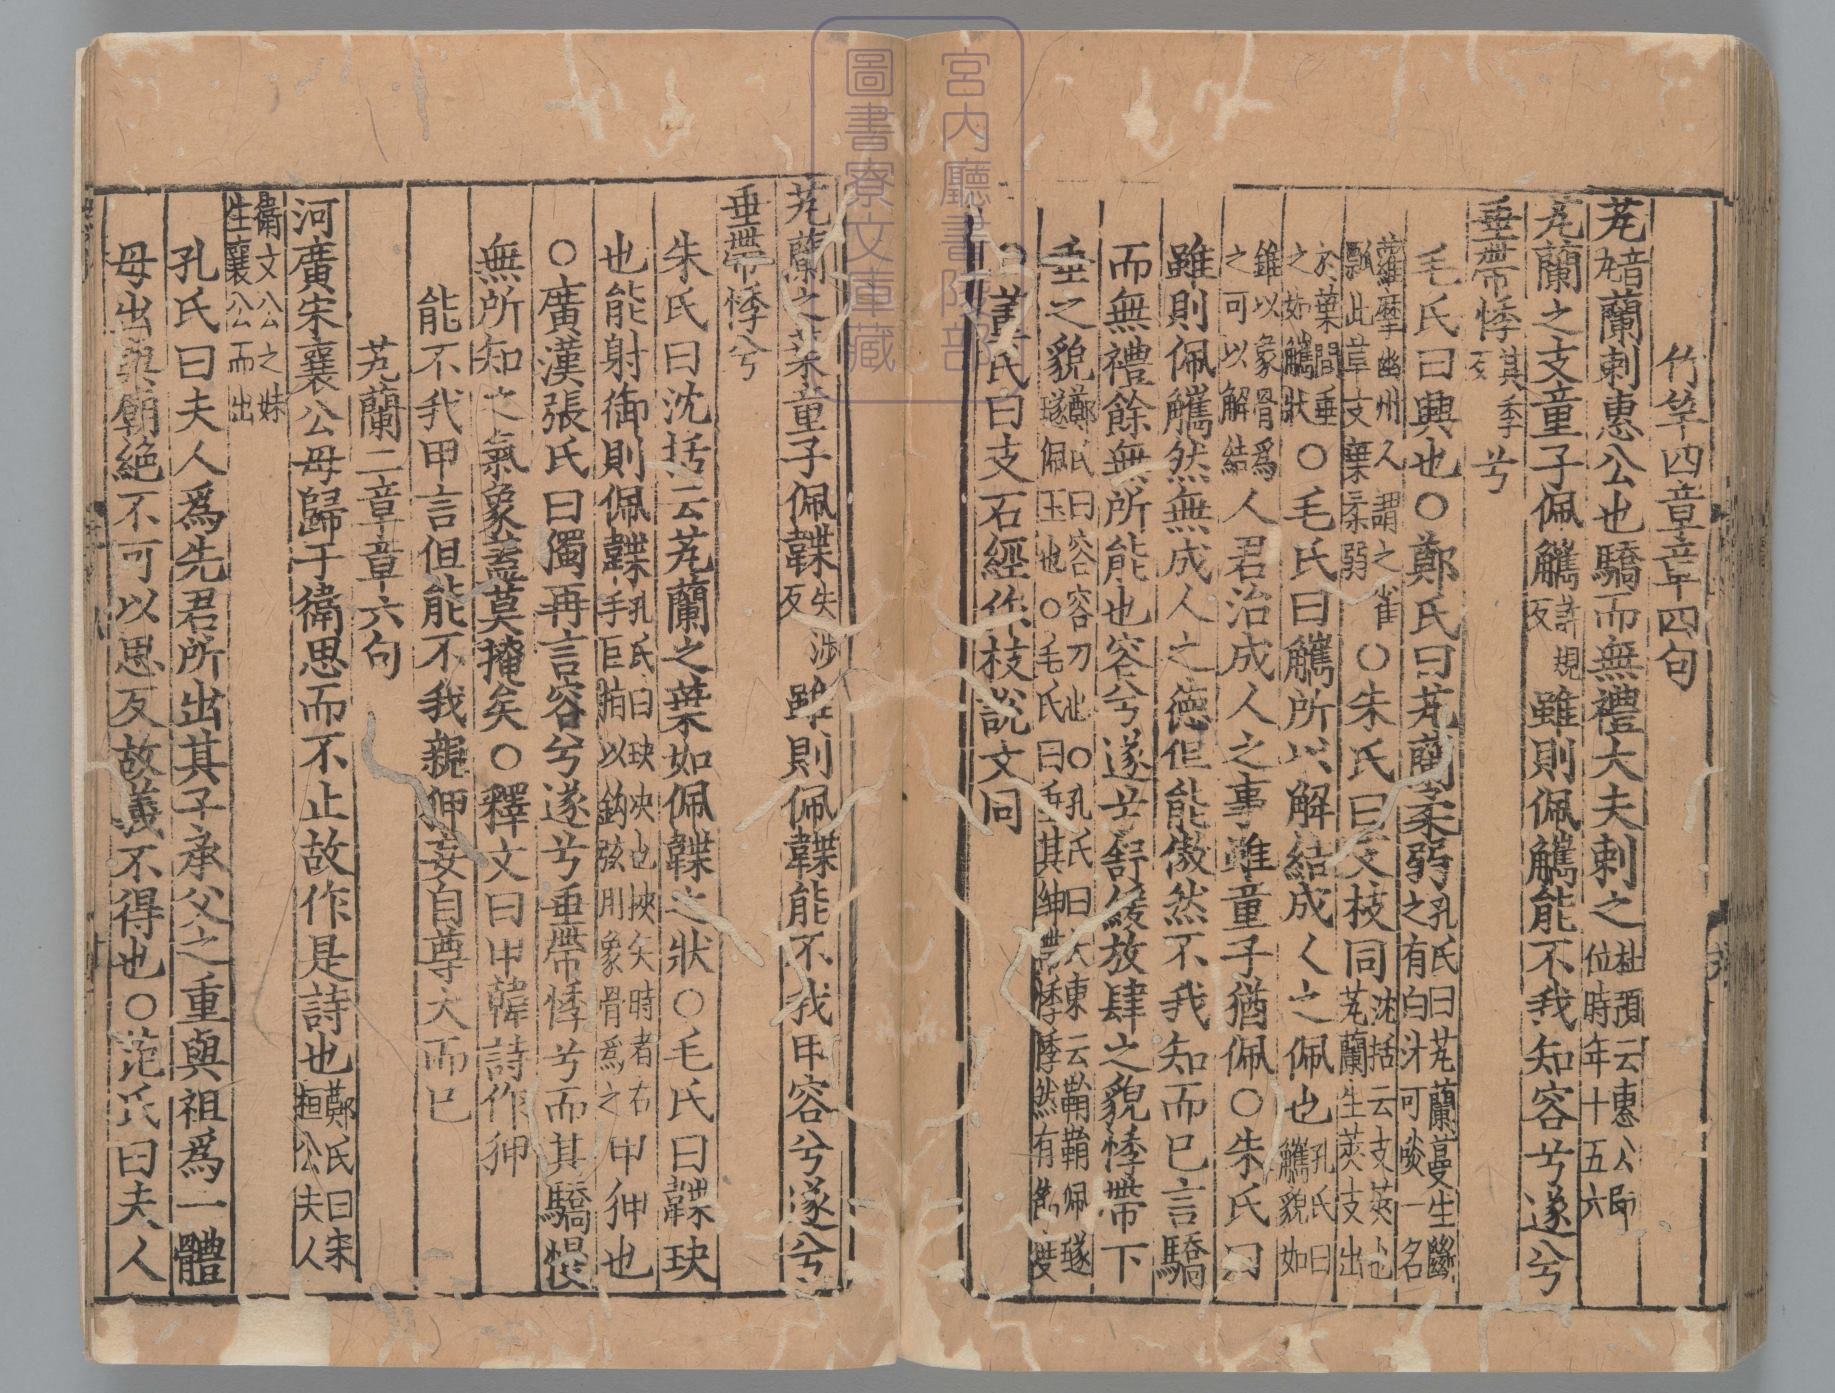 竹竿四章章四句
芄音丸蘭刺惠公也驕而無禮大夫刺之杜預云惠公即位時年十五六
芄蘭之支童子佩觿許規反雖則佩觿能不我知容兮遂兮
垂帶悸其季反兮
毛氏曰興也○鄭氏曰芄蘭柔弱之孔氏曰芄蘭蔓生幽有白汁可啖一名
蘿摩幽州人謂之雀瓢此草支葉柔弱○朱氏曰支枝同沈括云支莢也芄蘭生莢支出
於葉間垂之如觿狀○毛氏曰觿所以解結成人之佩也孔氏曰觿貌如
錐以象骨爲之可以解結人君治成人之事雖童子猶佩○朱氏曰
雖則佩觿然無成人之德但能傲然不我知而已言驕
而無禮餘無所能也容兮遂兮舒緩放肆之貌悸帶下
垂之貌鄭氏曰容容刀也○孔氏曰大東云鞙鞙佩璲璲佩玉也○毛氏曰垂其紳帶悸悸然有節度
○董氏曰支石經作枝說文同
芄蘭之葉童子佩韘失涉反雖則佩韘能不我甲容兮遂兮
垂帶悸兮
朱氏曰沈括云芄蘭之葉如佩韘之狀○毛氏曰韘玦
也能射御則佩韘孔氏曰玦決也挾矢時著右手巨指以鉤弦用象骨爲之甲狎也
○廣漢張氏曰獨再言容兮遂兮垂帶悸兮而其驕慢
無所知之氣象蓋莫掩矣○釋文曰甲韓詩作狎
能不我甲言但能不我親狎妄自尊大而已
芄蘭二章章六句
河廣宋襄公母歸于衛思而不止故作是詩也鄭氏曰宋桓公夫人
衛文公之妹生襄公而出
孔氏曰夫人爲先君所出其子承父之重與祖爲一體
母出與廟絕不可以思反故義不得也○范氏曰夫人
宮内廳書陵部
圖書寮文庫藏